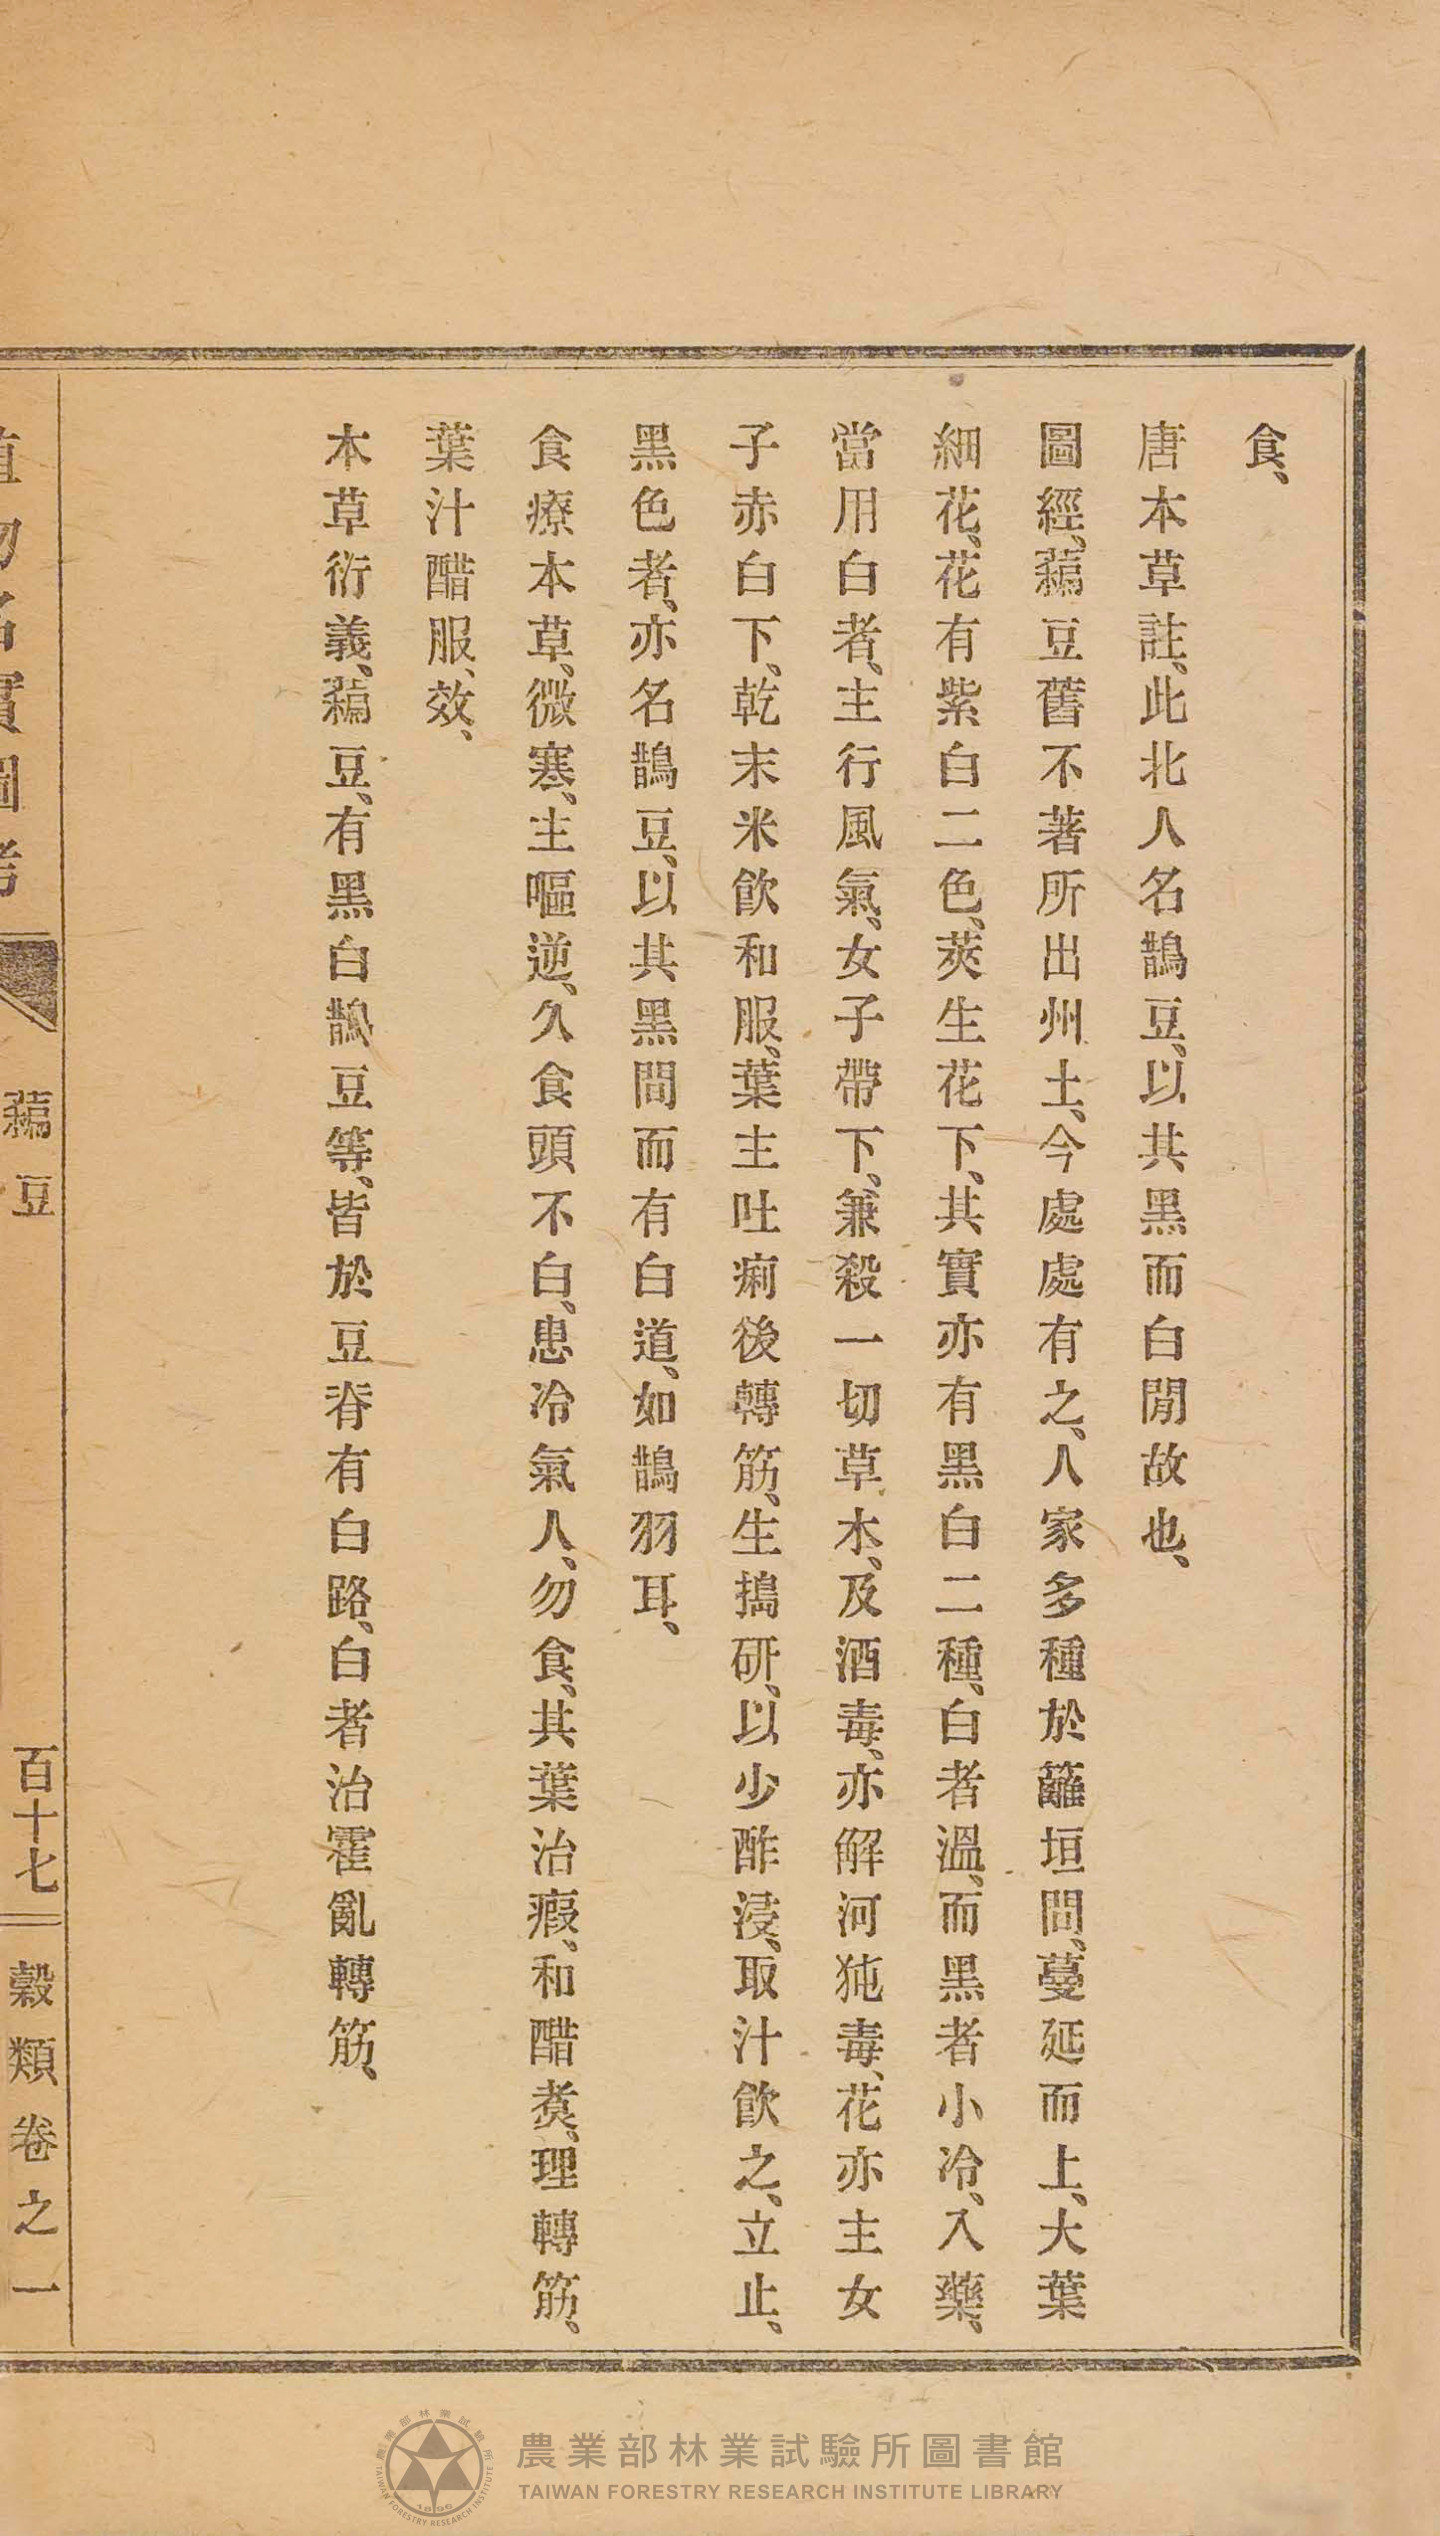 食、
唐本草註、此北人名鵲豆、以其黑而白閒故也、
圖經、藊豆舊不著所出州土、今處處有之、人家多種於籬垣間、蔓延而上、大葉
細花、花有紫白二色、莢生花下、其實亦有黑白二種、白者溫、而黑者小冷、入藥、
當用白者、主行風氣、女子帶下、兼殺一切草木、及酒毒、亦解河㹠毒、花亦主女
子赤白下、乾末米飲和服、葉主吐痢後轉筋、生搗研、以少酢浸、取汁飲之、立止、
黑色者、亦名鵲豆、以其黑間而有白道、如鵲羽耳、
食療本草、微寒、主嘔逆、久食頭不白、患冷氣人、勿食、其葉治瘕、和醋煑、理轉筋、
葉汁醋服、效、
本草衍義、藊豆、有黑白鵲豆等、皆於豆脊有白路、白者治霍亂轉筋、
植物名實圖考 藊豆 百十七 穀類卷之一
農業部林業試驗所圖書館
TAIWAN FORESTRY RESEARCH INSTITUTE LIBRARY